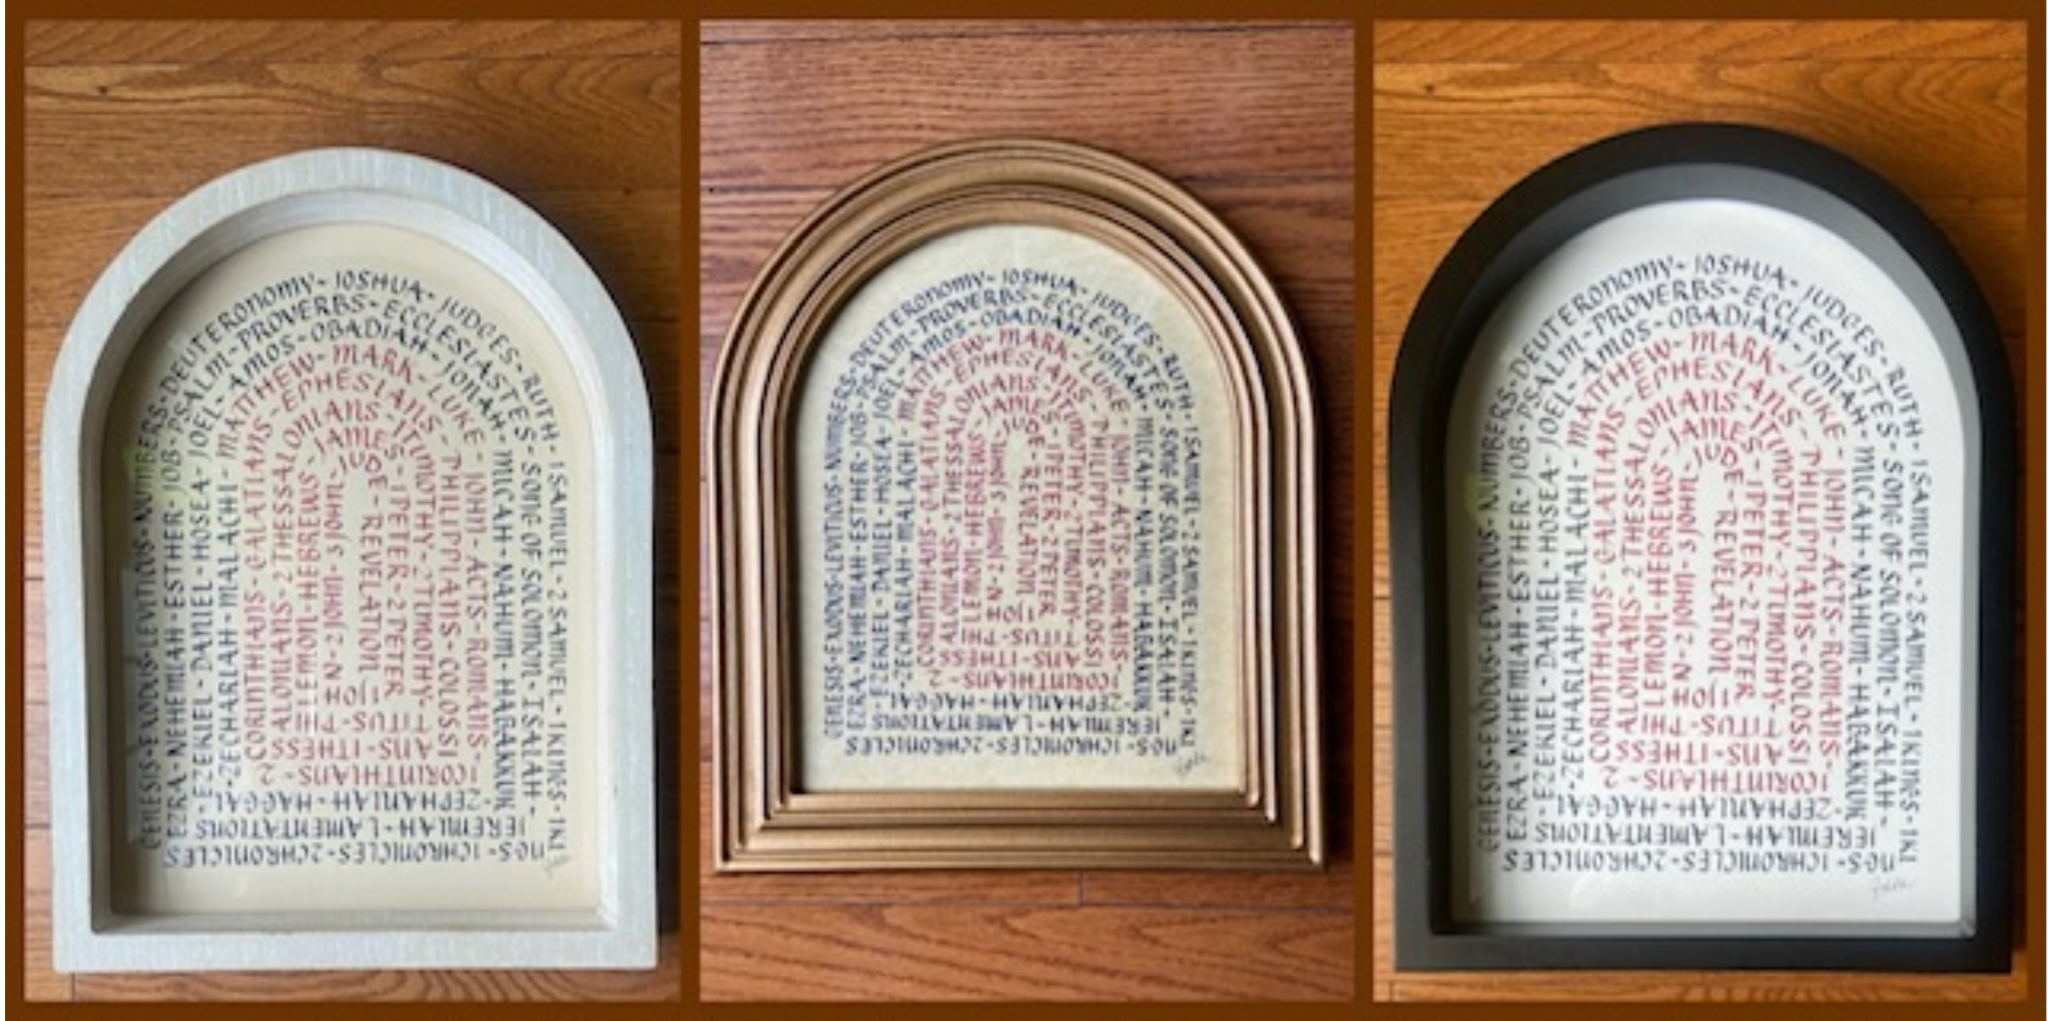 GENESIS-EXODUS-LEVITICUS-NUMBERS-DEUTERONOMY-JOSHUA-JUDGES-RUTH-1SAMUEL-2SAMUEL-1KI
NGS-1CHRONICLES-2CHRONICLES
EZRA-NEHEMIAH-ESTHER-JOB-PSALM-PROVERBS-ECCLESIASTES-SONG OF SOLOMON-ISAIAH-
JEREMIAH-LAMENTATIONS
-EZEKIEL-DANIEL-HOSEA-JOEL-AMOS-OBADIAH-JONAH-MICAH-NAHUM-HABAKKUK
-ZEPHANIAH-HAGGAI
-ZECHARIAH-MALACHI-MATTHEW-MARK-LUKE-JOHN-ACTS-ROMANS-
1CORINTHIANS-2
CORINTHIANS-GALATIANS-EPHESIANS-PHILIPPIANS-COLOSSI
ANS-1THESS
ALONIANS-2THESSALONIANS-1TIMOTHY-2TIMOTHY-
TITUS-PHI
LEMON-HEBREWS-JAMES-1PETER-2PETER
1JOH
N-2JOHN-3JOHN-JUDE-REVELATION
GENESIS-EXODUS-LEVITICUS-NUMBERS-DEUTERONOMY-JOSHUA-JUDGES-RUTH-1SAMUEL-2SAMUEL-1KINGS-1KI
NGS-1CHRONICLES-2CHRONICLES
EZRA-NEHEMIAH-ESTHER-JOB-PSALM-PROVERBS-ECCLESIASTES-SONG OF SOLOMON-ISAIAH-
JEREMIAH-LAMENTATIONS
-EZEKIEL-DANIEL-HOSEA-JOEL-AMOS-OBADIAH-JONAH-MICAH-NAHUM-HABAKKUK
-ZEPHANIAH-HAGGAI
-ZECHARIAH-MALACHI-MATTHEW-MARK-LUKE-JOHN-ACTS-ROMANS-
1CORINTHIANS-2
CORINTHIANS-GALATIANS-EPHESIANS-PHILIPPIANS-COLOSSI
ANS-1THESS
ALONIANS-2THESSALONIANS-1TIMOTHY-2TIMOTHY-
TITUS-PHI
LEMON-HEBREWS-JAMES-1PETER-2PETER
1JOH
N-2JOHN-3JOHN-JUDE-REVELATION
GENESIS-EXODUS-LEVITICUS-NUMBERS-DEUTERONOMY-JOSHUA-JUDGES-RUTH-1SAMUEL-2SAMUEL-1KINGS-1KI
NGS-1CHRONICLES-2CHRONICLES
EZRA-NEHEMIAH-ESTHER-JOB-PSALM-PROVERBS-ECCLESIASTES-SONG OF SOLOMON-ISAIAH-
JEREMIAH-LAMENTATIONS
-EZEKIEL-DANIEL-HOSEA-JOEL-AMOS-OBADIAH-JONAH-MICAH-NAHUM-HABAKKUK
-ZEPHANIAH-HAGGAI
-ZECHARIAH-MALACHI-MATTHEW-MARK-LUKE-JOHN-ACTS-ROMANS-
1CORINTHIANS-2
CORINTHIANS-GALATIANS-EPHESIANS-PHILIPPIANS-COLOSSI
ANS-1THESS
ALONIANS-2THESSALONIANS-1TIMOTHY-2TIMOTHY-
TITUS-PHI
LEMON-HEBREWS-JAMES-1PETER-2PETER
1JOH
N-2JOHN-3JOHN-JUDE-REVELATION